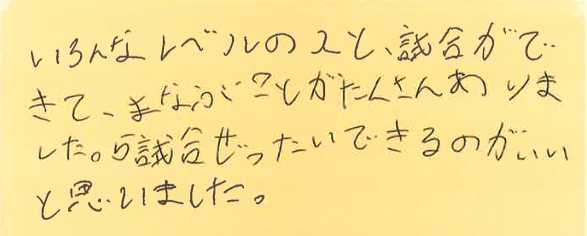 いろんなレベルの人と、試合がで
きて、まなぶことがたくさんありま
した。5試合ぜったいできるのがいい
と思いました。